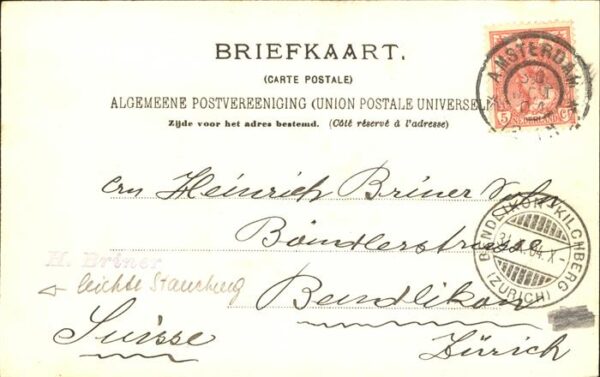 BRIEFKAART.
(CARTE POSTALE)
ALGEMEENE POSTVEREENIGING (UNION POSTALE UNIVERSEL
Zijde voor het adres bestemd. (Côté réservé à l'adresse)
AMSTERDAM
5 NEDERLAND Ct
Heinrich Briner Sohn
Böndlerstrasse
Bendlikon
Zürich
Suisse
H. Briner
leichte Stauchung
BENDLIKON-KILCHBERG
(ZÜRICH)